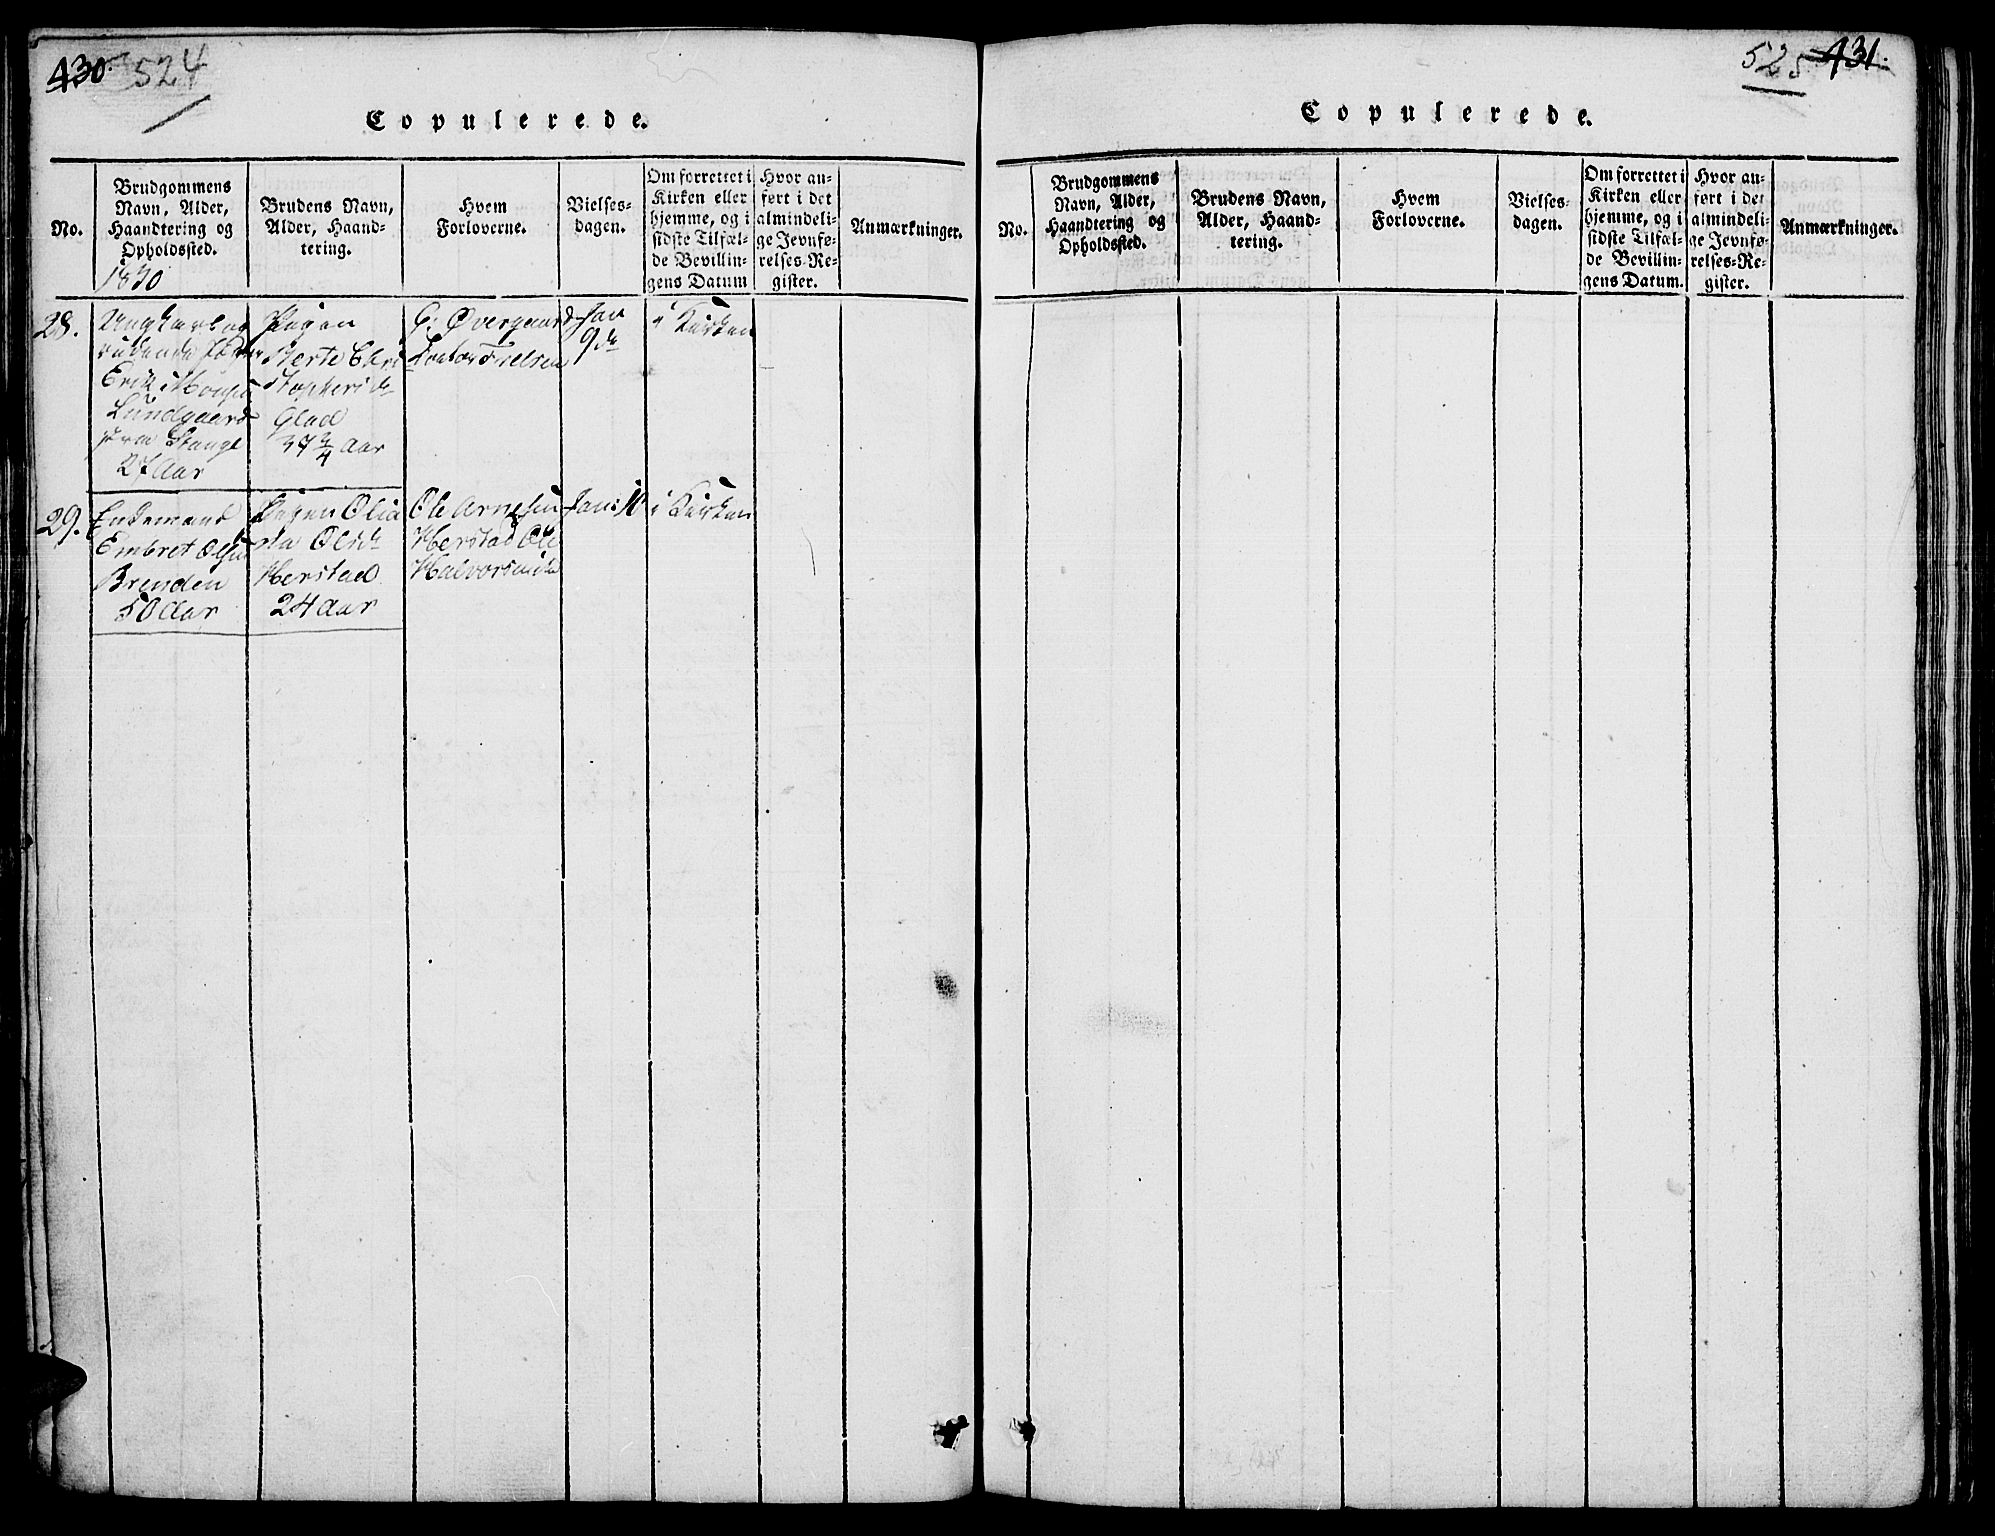 430. 524
Copulerede.
No.
Brudgommens
Navn, Alder,
Haandtering og
Opholdssted.
1830
Brudens Navn,
Alder, Haand-
tering.
Hvem
Forloverne.
Vielses-
dagen.
Om forrettet i
Kirken eller
hjemme, og i
sidste Tilfæl-
de Bevillin-
gens Datum
Hvor an-
ført i det
almindeli-
ge Jevnfø-
relses-Re-
gister.
Anmærkninger.
28.
Ungkarl og
Erik
Lundgaard
fra Stange
27 Aar
Pigen
Berte Chri
Glad
37 3/4 Aar
Overgaard
Jan
9de
i Kirken
29.
Enkemand
Embret Olsen
Brenden
50 Aar
Pigen Olia
na Olsd
Herstad
24 Aar
Ole Arnesen
Herstad Ole
Jan: 10
i Kirken
525 431.
Copulerede.
No.
Brudgommens
Navn, Alder,
Haandtering og
Opholdssted.
Brudens Navn,
Alder, Haand-
tering.
Hvem
Forloverne.
Vielses-
dagen.
Om forrettet i
Kirken eller
hjemme, og i
sidste Tilfæl-
de Bevillin-
gens Datum.
Hvor an-
ført i det
almindeli-
ge Jevnfø-
relses-Re-
gister.
Anmærkninger.